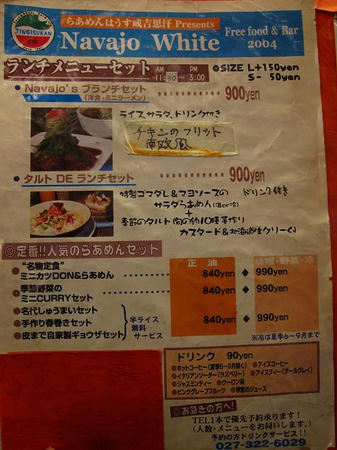 らあめんはうす成吉思汗 Presents
JINGISUKAN
Navajo White
Free food & Bar
2004
ランチメニューセット
AM 11:30 〜 PM 3:00
◎SIZE L+150yen
S- 50yen
Navajo's ブランチセット
(洋食・ミニラーメン)
900yen
ライス、サラダ、ドリンク付き
チキンのフリット
南欧風
タルト DE ランチセット
900yen
特製ゴマダレ&マヨソースの ドリンク付き
サラダらあめん
+
季節のタルト 向の約10種手作り
カスタード&北海道生クリーム
◎定番!!人気のらあめんセット
"名物定食"
ミニカツDON&らあめん
季節野菜の
ミニCURRYセット
名代しゅうまいセット
手作り春巻きセット
皮まで自家製ギョウザセット
半ライス
無料
サービス
正油
味噌・野菜・冷
840yen ◆ 990yen
840yen ◆ 990yen
840yen ◆ 990yen
※冷は夏季6〜9月まで
ドリンク 90yen
ホットコーヒー(夏季6〜9月除く) アイスコーヒー
イタリアンソーダー(ラズベリー) アイスティー(アールグレイ)
ジャスミンティー ウーロン茶
ピンクグレープフルーツ 季節のジュース
◎お急ぎの方へ!
TEL1本で優先予約承ります!
(人数・メニューをお伺いします。)
予約の方ドリンクサービス!!
027-322-6029